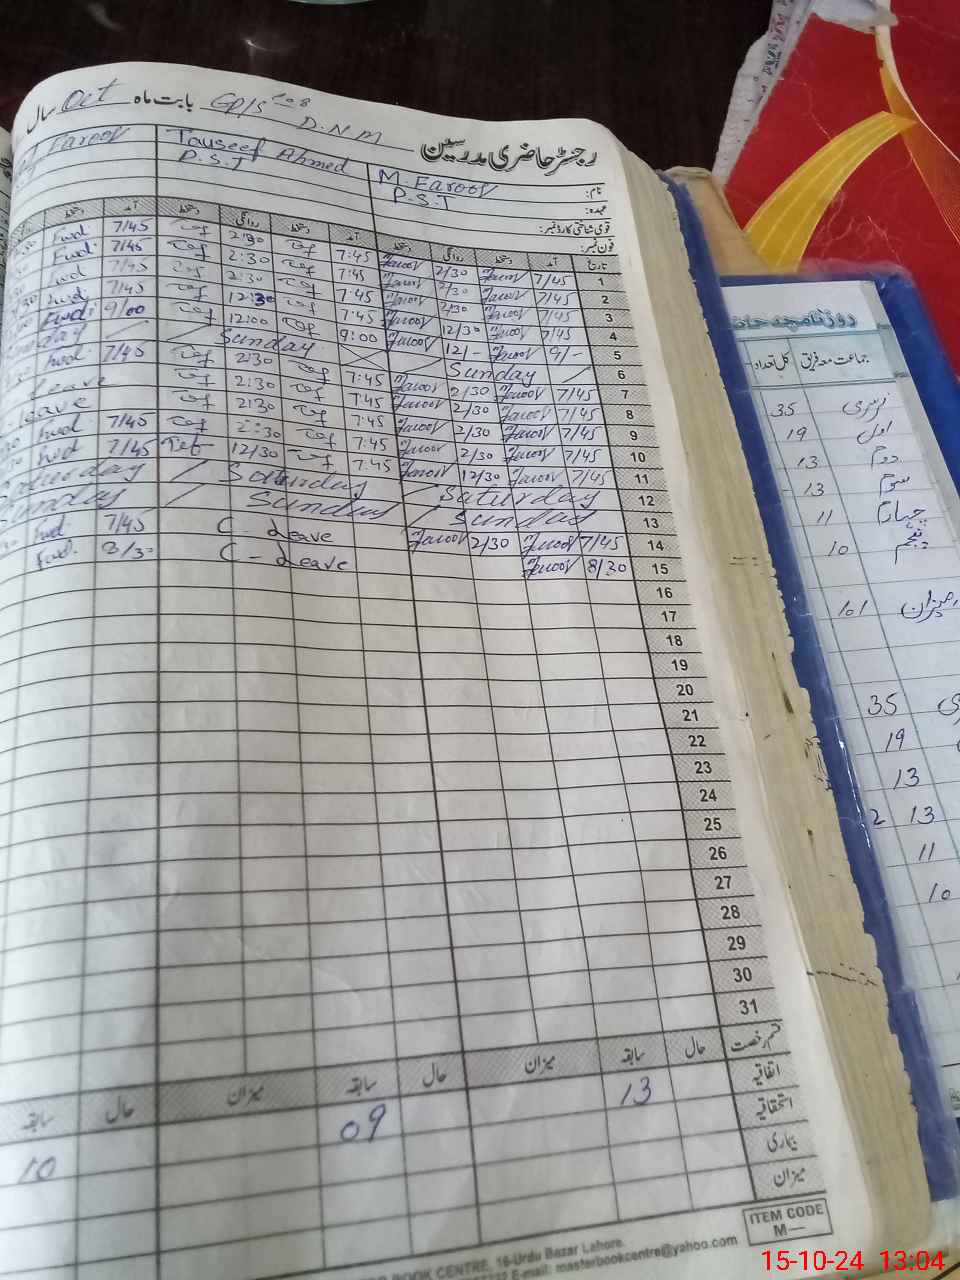 رجسٹر حاضری مدرسین بابت ماہ Oct سال
D.N.M
نام: M. Farooq Tauseef Ahmed Farooq
عہدہ: P.S.T P.S.T
قومی شناختی کارڈ نمبر:
فون نمبر:
تاریخ آمد دستخط روانگی دستخط آمد دستخط روانگی دستخط آمد دستخط
1 7/45 Farooq 2/30 Farooq 7:45 2:30 7/45 Fwd.
2 7/45 Farooq 2/30 Farooq 7:45 2:30 7/45 Fwd.
3 7/45 Farooq 2/30 Farooq 7:45 2:30 7/45 Fwd
4 7/45 Farooq 12/30 Farooq 7:45 12:30 7/45 Fwd.
5 9/- Farooq 12/- Farooq 9:00 12:00 9/00 Fwd.
6 Sunday Sunday
7 7/45 Farooq 2/30 Farooq 7:45 2:30 7/45 Fwd.
8 7/45 Farooq 2/30 Farooq 7:45 2:30 Leave
9 7/45 Farooq 2/30 Farooq 7:45 2:30 Leave
10 7/45 Farooq 2/30 Farooq 7:45 2:30 7/45 Fwd.
11 7/45 Farooq 12/30 Farooq 7:45 12/30 7/45 Fwd.
12 Saturday Saturday Saturday
13 Sunday Sunday Sunday
14 7/45 Farooq 2/30 Farooq C - Leave 7/45 Fwd.
15 8/30 Farooq C - Leave 8/30 Fwd.
16
17
18
19
20
21
22
23
24
25
26
27
28
29
30
31
قسم رخصت حال سابقہ میزان حال سابقہ میزان حال سابقہ
اتفاقیہ 13 09 10
استحقاقیہ
بیماری
میزان
ITEM CODE
M—
BOOK CENTRE, 16-Urdu Bazar Lahore.
E-mail: masterbookcentre@yahoo.com
روزنامچہ
جماعت معہ فریق کل تعداد
نرسری 35
اول 19
دوم 13
سوم 13
چہارم 11
پنجم 10
میزان 101
35
19
13
2 13
11
10
15-10-24 13:04